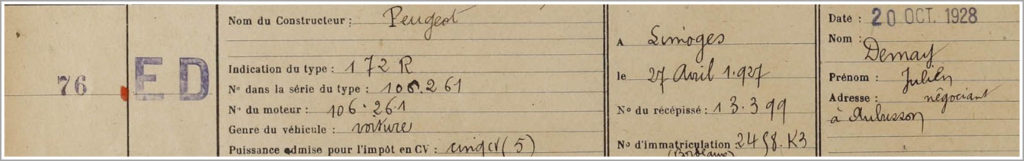 76
ED
Nom du Constructeur : Peugeot
Indication du type : 172 R
N° dans la série du type : 106.261
N° du moteur : 106.261
Genre du véhicule : voiture
Puissance admise pour l'impôt en CV : cinq cv (5)
A Limoges
le 27 Avril 1.927
N° du récépissé : 13.399
N° d'immatriculation 2458.K3
(Bordeaux)
Date : 20 OCT. 1928
Nom : Demay
Prénom : Julien
Adresse : négociant
à Aubusson